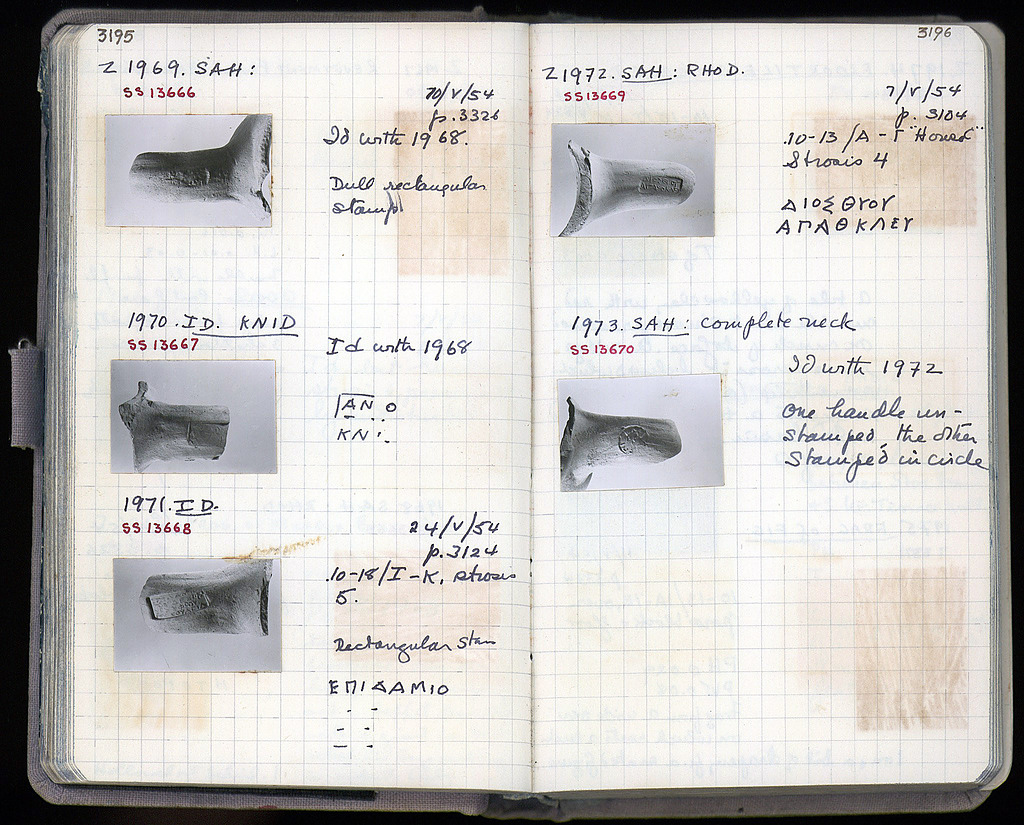 3195
Z 1969. SAH:
SS 13666
10/V/54
p. 3326
Id with 1968.
Dull rectangular
stamp
1970. ID. KNID
SS 13667
Id with 1968
AN O
KN
1971. ID.
SS 13668
24/V/54
p. 3124
10-18/I-K, strosis
5.
Rectangular Stam
ΕΠΙΔΑΜΙΟ
3196
Z 1972. SAH: RHOD.
SS 13669
7/V/54
p. 3104
10-13/A-Γ "House"
Strosis 4
ΔΙΟΣΘΥΟΥ
ΑΓΑΘΚΛΕΥ
1973. SAH: complete neck
SS 13670
Id with 1972
One handle un-
stamped, the other
stamped in circle